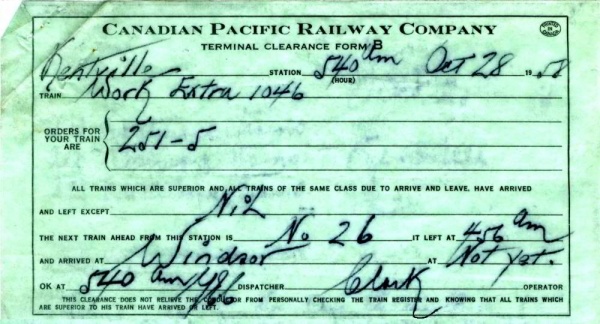 CANADIAN PACIFIC RAILWAY COMPANY
TERMINAL CLEARANCE FORM B
Kentville STATION 540 am (HOUR) Oct 28 1958
TRAIN Work Extra 1046
ORDERS FOR YOUR TRAIN ARE 251-5
ALL TRAINS WHICH ARE SUPERIOR AND ALL TRAINS OF THE SAME CLASS DUE TO ARRIVE AND LEAVE, HAVE ARRIVED
AND LEFT EXCEPT Nil
THE NEXT TRAIN AHEAD FROM THIS STATION IS No 26 IT LEFT AT 456 am
AND ARRIVED AT Windsor AT Not yet.
OK AT 540 am DISPATCHER Clark OPERATOR
THIS CLEARANCE DOES NOT RELIEVE THE CONDUCTOR FROM PERSONALLY CHECKING THE TRAIN REGISTER AND KNOWING THAT ALL TRAINS WHICH
ARE SUPERIOR TO HIS TRAIN HAVE ARRIVED OR LEFT.